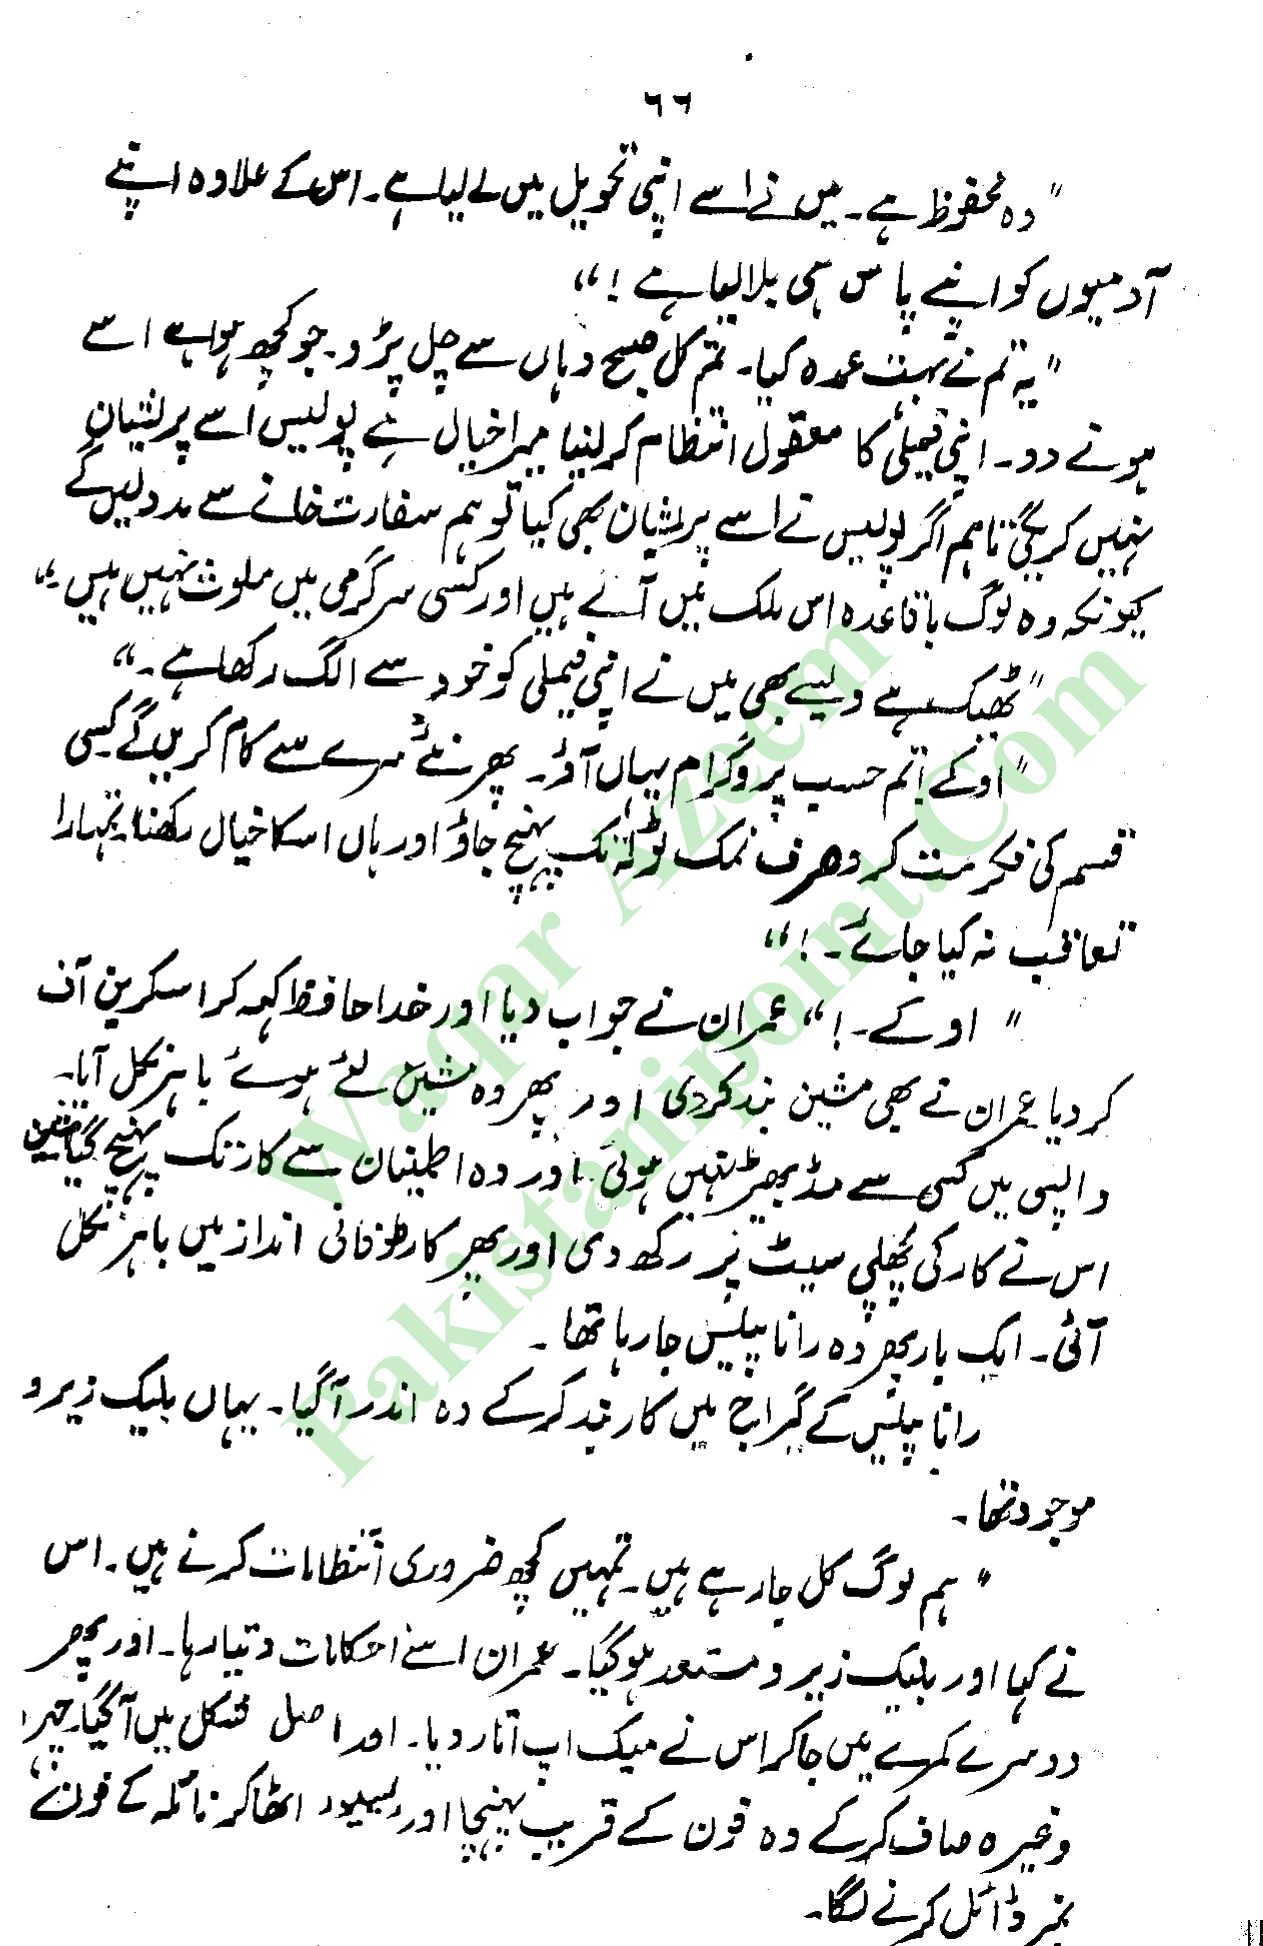 ۶۶
"وہ محفوظ ہے۔ میں نے اسے اپنی تحویل میں لے لیا ہے۔ اس کے علاوہ اپنے
آدمیوں کو اپنے پاس ہی بلا لیا ہے !"
"یہ تم نے بہت عمدہ کیا۔ تم کل صبح وہاں سے چل پڑو۔ جو کچھ ہوا ہے اسے
ہونے دو۔ اپنی فیملی کا معقول انتظام کر لینا میرا خیال ہے پولیس اسے پریشان
نہیں کریگی تاہم اگر پولیس نے اسے پریشان بھی کیا تو ہم سفارت خانے سے مدد لیں گے
کیونکہ وہ لوگ باقاعدہ اس ملک میں آئے ہیں اور کسی سرگرمی میں ملوث نہیں ہیں۔"
"ٹھیک ہے ویسے بھی میں نے اپنی فیملی کو خود سے الگ رکھا ہے۔"
"اوکے ! تم حسب پروگرام یہاں آؤ۔ پھر نئے سرے سے کام کریں گے کسی
قسم کی فکر مت کرو صرف نمک لوٹنے تک پہنچ جاؤ اور ہاں اسکا خیال رکھنا تمہارا
تعاقب نہ کیا جائے۔ !"
"اوکے۔ !" عمران نے جواب دیا اور خدا حافظ کہہ کر اسکرین آف
کر دیا عمران نے بھی مشین بند کردی اور پھر وہ مشین لئے ہوئے باہر نکل آیا۔
واپسی میں کسی سے مڈبھیڑ نہیں ہوئی اور وہ اطمینان سے کار تک پہنچ گیا مشین
اس نے کار کی پچھلی سیٹ پر رکھ دی اور پھر کار طوفانی انداز میں باہر نکل
آئی۔ ایک بار پھر وہ رانا پیلس جا رہا تھا۔
رانا پیلس کے گیراج میں کار بند کر کے وہ اندر آ گیا۔ یہاں بلیک زیرو
موجود تھا۔
"ہم لوگ کل جا رہے ہیں۔ تمہیں کچھ ضروری انتظامات کرنے ہیں۔ اس
نے کہا اور بلیک زیرو مستعد ہو گیا۔ عمران اسے احکامات دیتا رہا۔ اور پھر
دوسرے کمرے میں جا کر اس نے میک اپ اتار دیا۔ اور اصل شکل میں آ گیا۔ چہرا
وغیرہ صاف کر کے وہ فون کے قریب پہنچا اور ریسیور اٹھا کر نائلہ کے فون کے
نمبر ڈائل کرنے لگا۔
Waqar Azeem
Pakistanipoint.Com